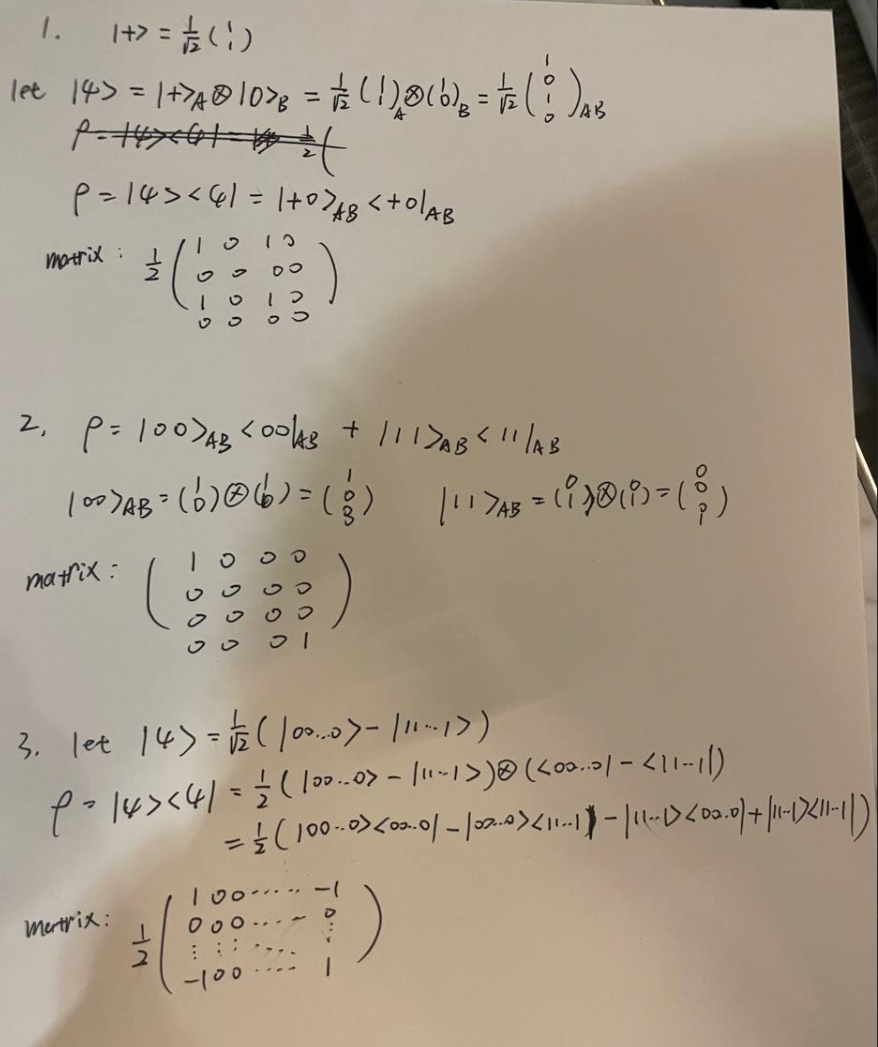 1. |+> = 1/√2 (1 1)
let |ψ> = |+>_A ⊗ |0>_B = 1/√2 (1 1)_A ⊗ (1 0)_B = 1/√2 (1 0 1 0)_AB
ρ = |ψ><ψ| = |+0>_AB <+0|_AB
matrix: 1/2 (
1 0 1 0
0 0 0 0
1 0 1 0
0 0 0 0
)
2. ρ = |00>_AB <00|_AB + |11>_AB <11|_AB
|00>_AB = (1 0) ⊗ (1 0) = (1 0 0 0) |11>_AB = (0 1) ⊗ (0 1) = (0 0 0 1)
matrix: (
1 0 0 0
0 0 0 0
0 0 0 0
0 0 0 1
)
3. let |ψ> = 1/√2 (|00...0> - |11...1>)
ρ = |ψ><ψ| = 1/2 (|00...0> - |11...1>) ⊗ (<00...0| - <11...1|)
= 1/2 (|00...0><00...0| - |00...0><11...1| - |11...1><00...0| + |11...1><11...1|)
matrix: 1/2 (
1 0 0 ...... -1
0 0 0 .... 0
⋮ ⋮ ⋮ .... ⋮
-1 0 0 .... 1
)